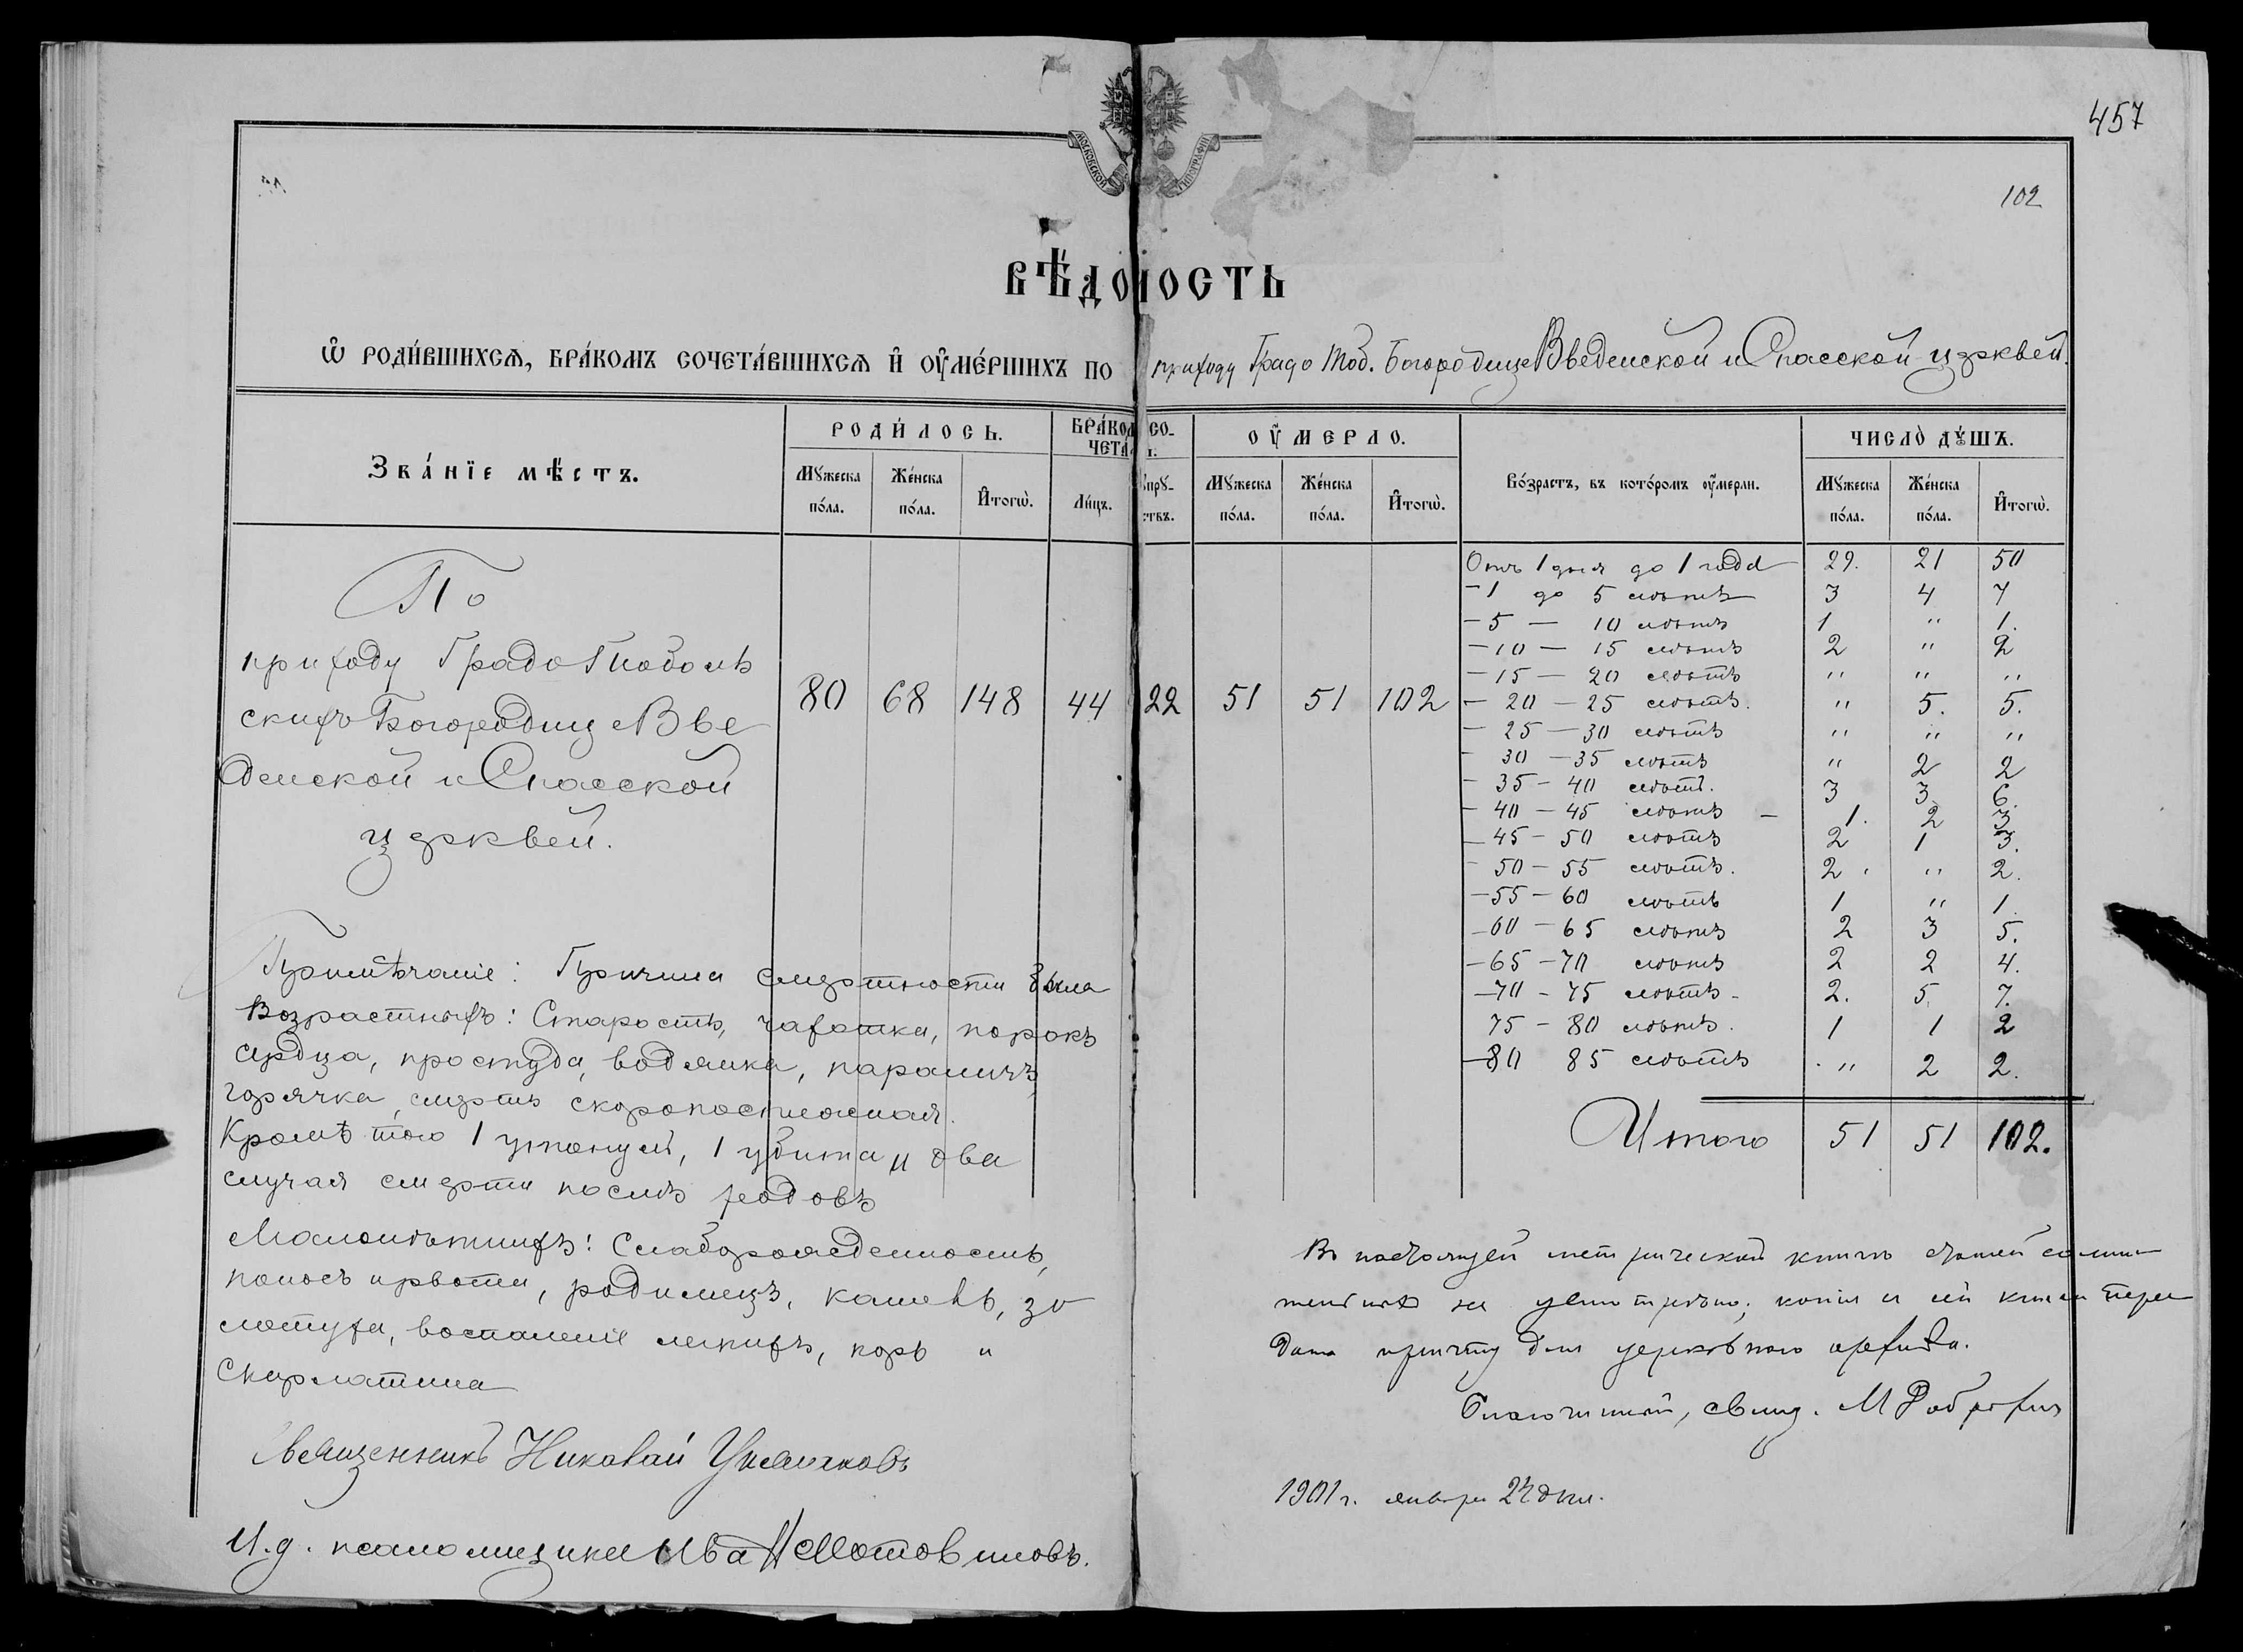 457
102
МОСКОВСКОЙ ТИПОГРАФІИ
ВѢ́ДОМОСТЬ
Ѡ҆ РОДИ́ВШИХСѦ, БРА́КОМЪ СОЧЕТА́ВШИХСѦ И҆ ОУ҆МЕ́РШИХЪ ПО приходу Градо Тоб. Богородице Введенской и Спасской церквей.
Зва́нїе мѣ́стъ.
РОДИ́ЛОСЬ.
Мꙋ́жеска по́ла. Же́нска по́ла. И҆тогѡ̀.
БРА́КОМ СО-
ЧЕТА
Ли́цъ. Супрꙋ- ствъ.
ОУ҆́МЕРЛО.
Мꙋ́жеска по́ла. Же́нска по́ла. И҆тогѡ̀.
Во́зрастъ, въ кото́ромъ оу҆́мерли.
ЧИСЛО̀ ДꙊ́ШЪ.
Мꙋ́жеска по́ла. Же́нска по́ла. И҆тогѡ̀.
По
приходу Градо Тоболь
скихъ Богородице Вве
денской и Спасской
церквей.
80 68 148 44 22 51 51 102
Отъ 1 дня до 1 года 29. 21 50
- 1 до 5 лѣтъ 3 4 7
- 5 — 10 лѣтъ 1 " 1.
- 10 — 15 лѣтъ 2 " 2
- 15 — 20 лѣтъ " " "
- 20 - 25 лѣтъ. " 5. 5.
- 25 — 30 лѣтъ " " "
- 30 - 35 лѣтъ " 2 2
- 35 - 40 лѣтъ. 3 3 6.
- 40 - 45 лѣтъ - 1. 2 3
- 45 - 50 лѣтъ 2 1 3.
- 50 - 55 лѣтъ. 2 " 2.
- 55 - 60 лѣтъ 1 " 1.
- 60 - 65 лѣтъ 2 3 5.
- 65 - 70 лѣтъ 2 2 4.
- 70 - 75 лѣтъ - 2. 5. 7.
75 - 80 лѣтъ. 1 1 2
- 80 85 лѣтъ " 2 2.
Итого 51 51 102.
Примѣчаніе: Причина смертности была
Возрастныхъ: Старость, чахотка, порокъ
сердца, простуда, водянка, параличъ,
горячка, смерть скоропостижная.
Кромѣ того 1 утонулъ, 1 убита и два
случая смерти послѣ родовъ
Малолѣтнихъ: Слаборожденность,
поносъ и рвота, родимецъ, кашель, зо
лотуха, воспаленіе легкихъ, корь и
Скарлатина
Священникъ Николай
И. д. псаломщика Иван Мотовиловъ.
Въ настоящей метрической книгѣ статей сомни-
тельныхъ не усмотрѣно; копія и сей книги пере
дана причту для церковнаго архива.
Благочинный, свящ. М
1901 г. января 24 дня.